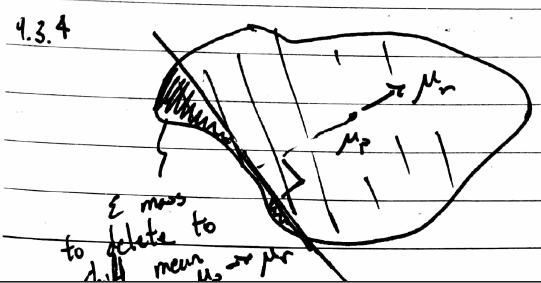 4.3.4
μ_r
μ_p
ε mass
to delete to
mean μ_p → μ_r